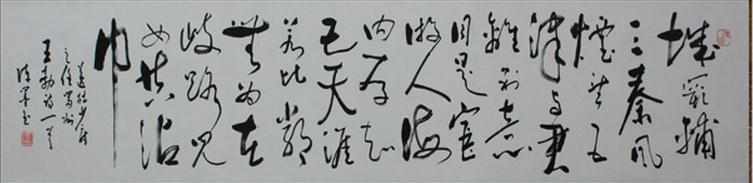 城闕輔
三秦風
煙望五
津与君
離别意
同是宦
游人海
内存知
己天涯
若比鄰
無为在
歧路兒
女共沾
巾
送杜少府
之任蜀州
王勃詩一首